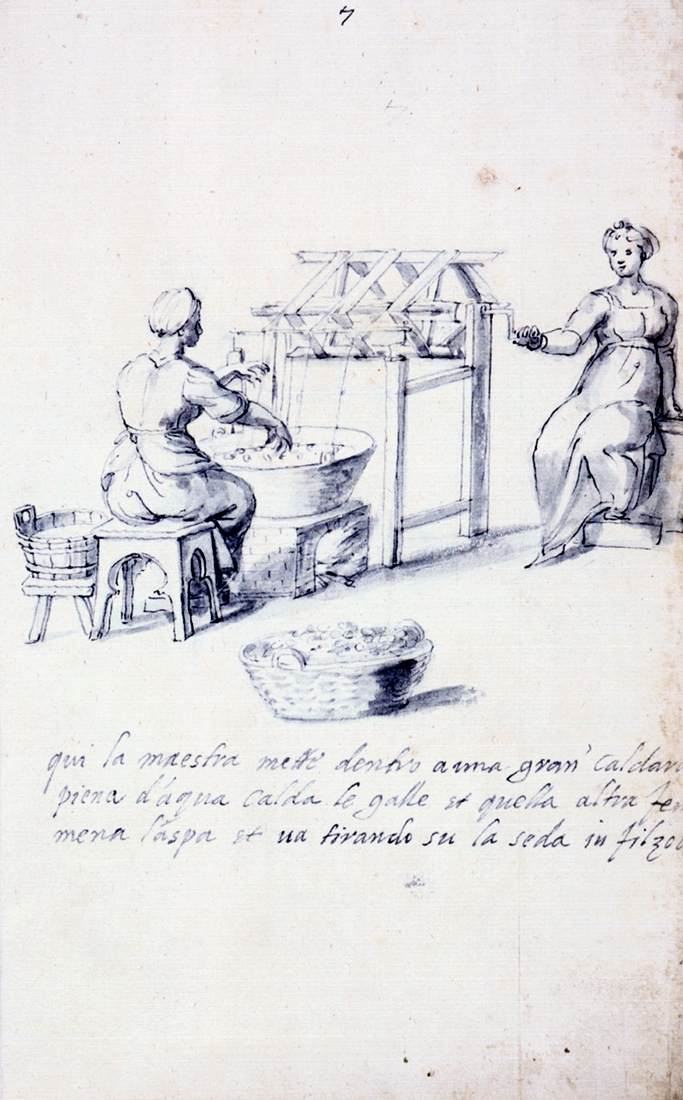 7
qui la maestra mette dentro a una gran' Caldar
piena d'aqua Calda le galle et quella altra fe
mena laspa et ua tirando su la seda in filzo